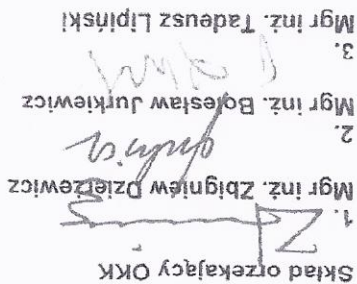 Skład orzekający OKK
1.
Mgr inż. Zbigniew Dzierżewicz
2.
Mgr inż. Bolesław Jurkiewicz
3.
Mgr inż. Tadeusz Lipiński